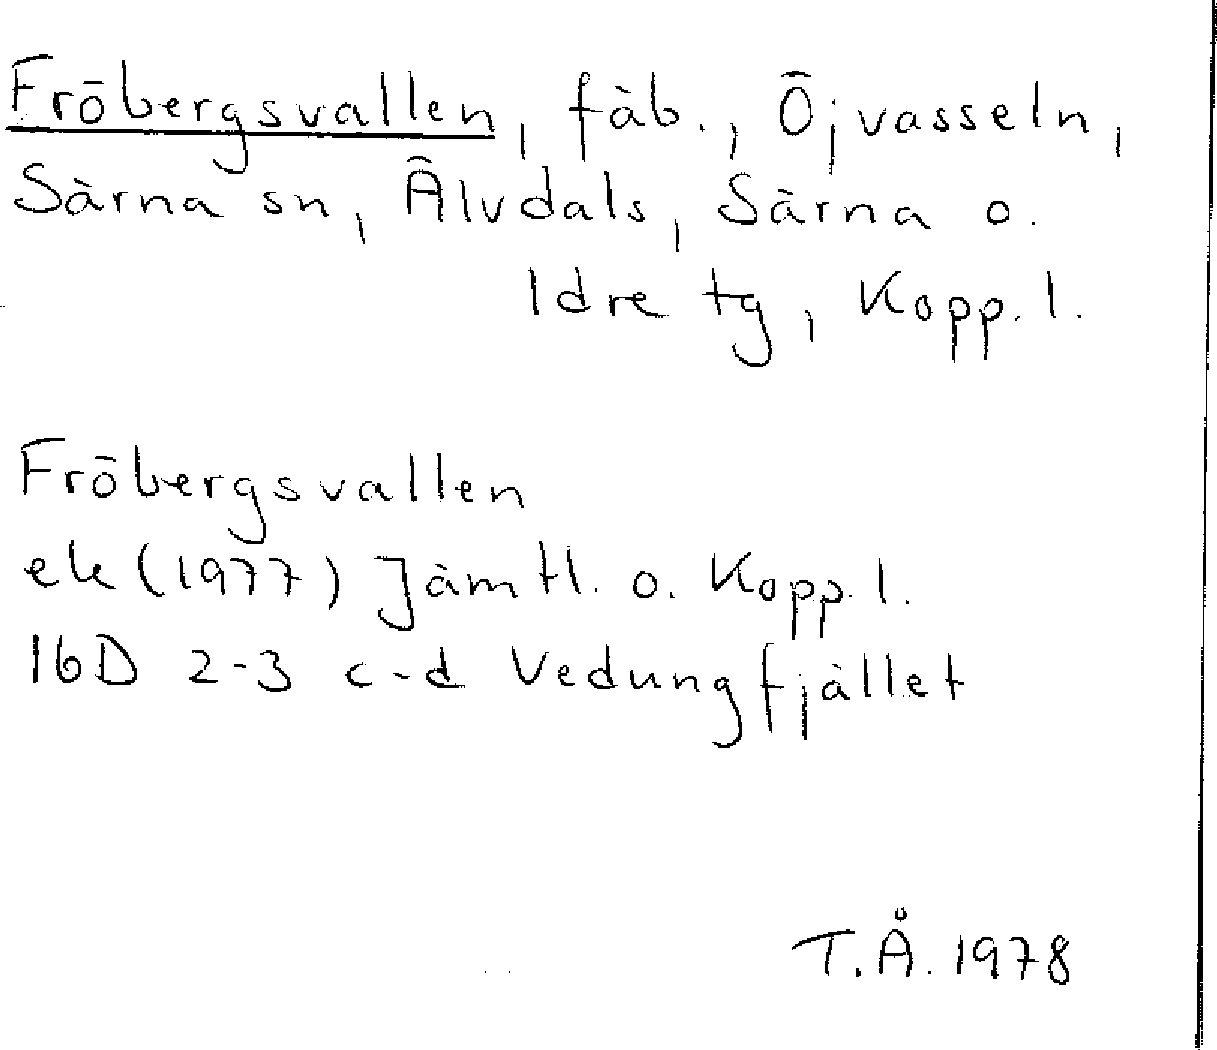 Fröbergsvallen, fäb., Öjvasseln,
Särna sn, Älvdals, Särna o.
Idre tg, Kopp. l.
Fröbergsvallen
ek (1977) Jämtl. o. Kopp. l.
16D 2-3 c-d Vedungfjället
T.Å. 1978